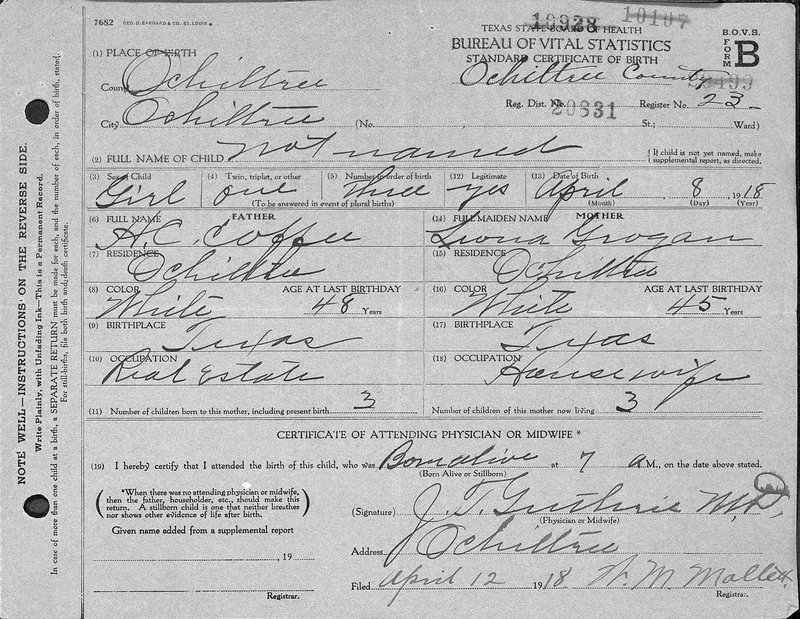 7682 GEO. D. BARNARD & CO. ST. LOUIS
10928 10107
TEXAS STATE BOARD OF HEALTH
BUREAU OF VITAL STATISTICS
STANDARD CERTIFICATE OF BIRTH
B.O.V.S.
FORM B
(1) PLACE OF BIRTH
County Ochiltree
Ochiltree County
City Ochiltree
Reg. Dist. No. 20831 Register No. 23
(No. St.; Ward)
(2) FULL NAME OF CHILD Not named
{If child is not yet named, make supplemental report, as directed.
(3) Sex of Child Girl
(4) Twin, triplet, or other one
(5) Number in order of birth three
(To be answered in event of plural births)
(12) Legitimate yes
(13) Date of Birth April 8, 1918
(Month) (Day) (Year)
FATHER
(6) FULL NAME H.C. Coffee
MOTHER
(14) FULL MAIDEN NAME Leona Grogan
(7) RESIDENCE Ochiltree
(15) RESIDENCE Ochiltree
(8) COLOR White AGE AT LAST BIRTHDAY 48 Years
(16) COLOR White AGE AT LAST BIRTHDAY 45 Years
(9) BIRTHPLACE Texas
(17) BIRTHPLACE Texas
(10) OCCUPATION Real Estate
(18) OCCUPATION Housewife
(11) Number of children born to this mother, including present birth 3
Number of children of this mother now living 3
CERTIFICATE OF ATTENDING PHYSICIAN OR MIDWIFE *
(19) I hereby certify that I attended the birth of this child, who was Born alive at 7 a M., on the date above stated.
(Born Alive or Stillborn)
(*When there was no attending physician or midwife, then the father, householder, etc., should make this return. A stillborn child is one that neither breathes nor shows other evidence of life after birth.)
(Signature) J. T. Guthrie M.D.
(Physician or Midwife)
Given name added from a supplemental report
Address Ochiltree
, 19
Filed April 12 1918. W. M. Mallett
Registrar.
Registrar.
NOTE WELL—INSTRUCTIONS ON THE REVERSE SIDE.
Write Plainly, with Unfading Ink—This is a Permanent Record.
In case of more than one child at a birth, a SEPARATE RETURN must be made for each, and the number of each, in order of birth, stated.
For still-births, file both birth and death certificate.